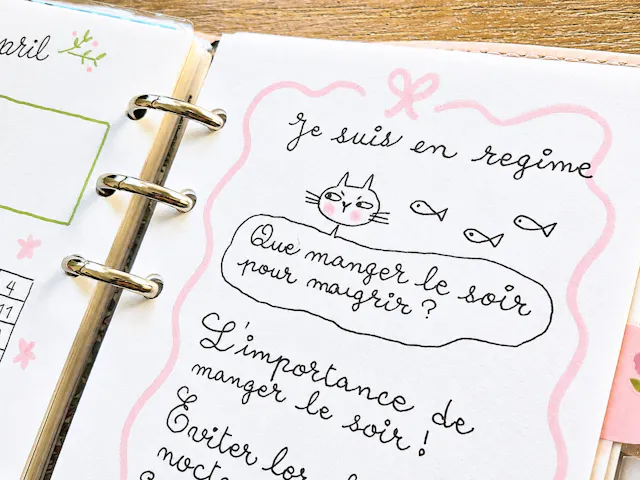 pril
4
11
Je suis en regime
Que manger le soir
pour maigrir ?
L'importance de
manger le soir !
Eviter